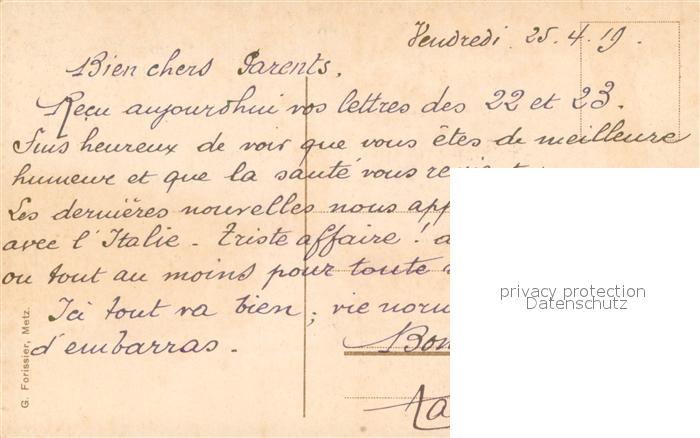 Vendredi 25.4.19.
Bien chers Parents,
Reçu aujourdhui vos lettres des 22 et 23.
Suis heureux de voir que vous êtes de meilleure
humeur et que la santé vous
Les dernières nouvelles nous
avec l'Italie - Triste affaire!
ou tout au moins pour toute
Ici tout va bien; vie
d'embarras.
privacy protection
Datenschutz
G. Forissier, Metz.